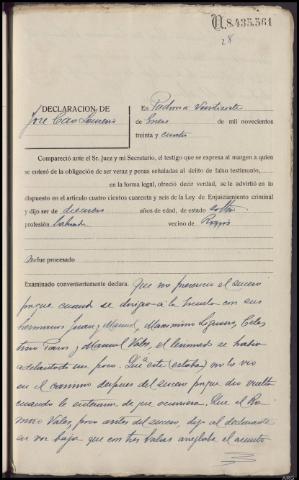 N.8.435.561
28
DECLARACION DE
José Cao Loureiro
En Padrón Veintisiete
de Enero de mil novecientos
treinta y cuatro
Compareció ante el Sr. Juez y mi Secretario, el testigo que se expresa al margen a quien
se enteró de la obligación de ser veraz y penas señaladas al delito de falso testimonio,
en la forma legal, ofreció decir verdad, se le advirtió en lo
dispuesto en el artículo cuatro cientos cuarenta y seis de la Ley de Enjuiciamiento criminal
y dijo ser de dieciocho años de edad, de estado soltero
profesión labrador vecino de
No fue procesado
Examinado convenientemente declara. Que no presenció el suceso
porque cuando se dirigía a la con sus
hermanos Juan y Manuel, Maximino
y Manuel el lesionado se había
adelantado un poco. Que este (estaba) no lo vio
en el camino despues del suceso porque dio vuelta
cuando le enteraron de que ocurriera. Que el
poco antes del suceso, dijo al declarante
en voz baja que con tres balas arreglaba el asunto